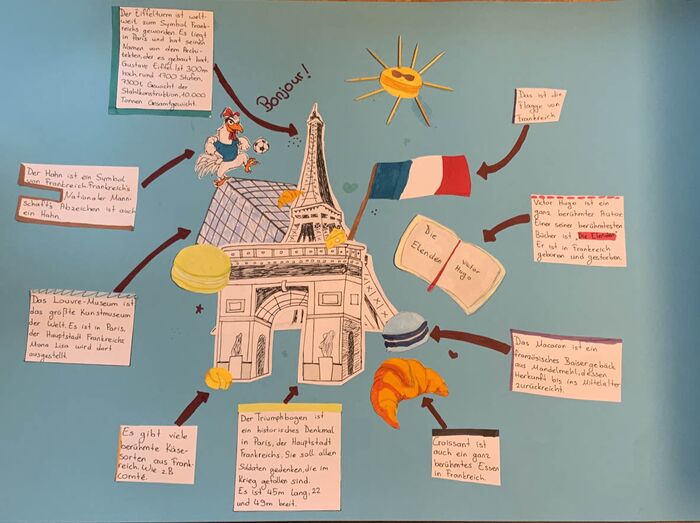 Der Eiffelturm ist welt-
weit zum Symbol Frank-
reichs geworden. Es liegt
in Paris und hat seinen
Namen von dem Archi-
tekten, der es gebaut hat.
Gustave Eiffel. Ist 300m
hoch, rund 1700 Stufen,
7300t Gewicht der
Stahlkonstruktion, 10.000
Tonnen Gesamtgewicht.
Bonjour!
Das ist die
Flagge von
Frankreich
Der Hahn ist ein Symbol
von Frankreich. Frankreich's
Nationaler Mann-
schafts Abzeichen ist auch
ein Hahn.
Victor Hugo ist ein
ganz berühmter Autor
Einer seiner berühmtesten
Bücher ist Die Elenden
Er ist in Frankreich
geboren und gestorben.
Die
Elenden
Victor
Hugo
Das Louvre-Museum ist
das größte Kunstmuseum
der Welt. Es ist in Paris,
der Hauptstadt Frankreichs
Mona Lisa wird dort
ausgestellt.
Das Macaron ist ein
französisches Baisergebäck
aus Mandelmehl, dessen
Herkunft bis ins Mittelalter
zurückreicht.
Es gibt viele
berühmte Käse-
sorten aus Frank-
reich. Wie z.B
comté.
Der Triumphbogen ist
ein historisches Denkmal
in Paris, der Hauptstadt
Frankreichs. Sie soll allen
Soldaten gedenken, die im
Krieg gefallen sind.
Es ist 45m lang, 22
und 49m breit.
Croissant ist
auch ein ganz
berühmtes Essen
in Frankreich.